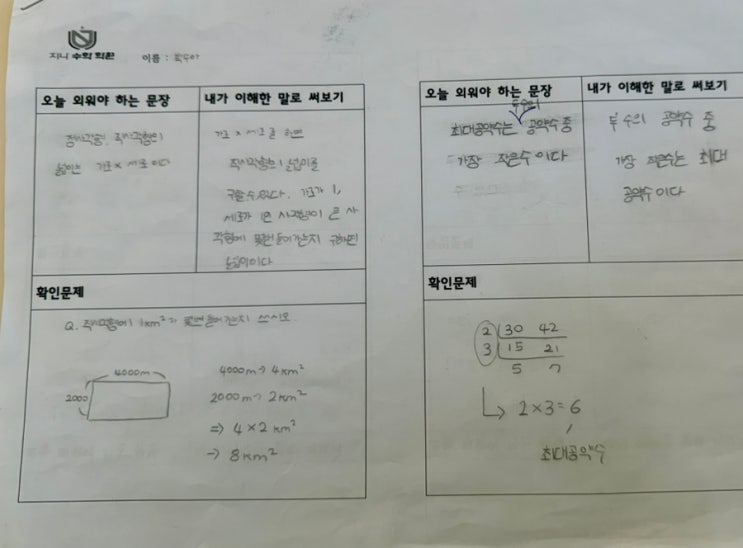 지니 수학 학원
이름 :
오늘 외워야 하는 문장
내가 이해한 말로 써보기
정사각형, 직사각형의
넓이는 가로 × 세로 이다
가로 × 세로를 하면
직사각형의 넓이를
구할 수 있다. 가로가 1,
세로가 1인 사각형이 큰 사
각형에 몇번 들어가는지 구하면
넓이이다
확인문제
Q. 직사각형에 1km²가 몇번 들어가는지 쓰시오.
4000m
2000
4000m → 4km²
2000m → 2km²
⇒ 4×2 km²
→ 8km²
오늘 외워야 하는 문장
내가 이해한 말로 써보기
두수의
최대공약수는 공약수 중
가장 작은수 이다
두 수의 공약수 중
가장 작은수는 최대
공약수 이다
확인문제
2 30 42
3 15 21
5 7
↳ 2×3=6
최대공약수